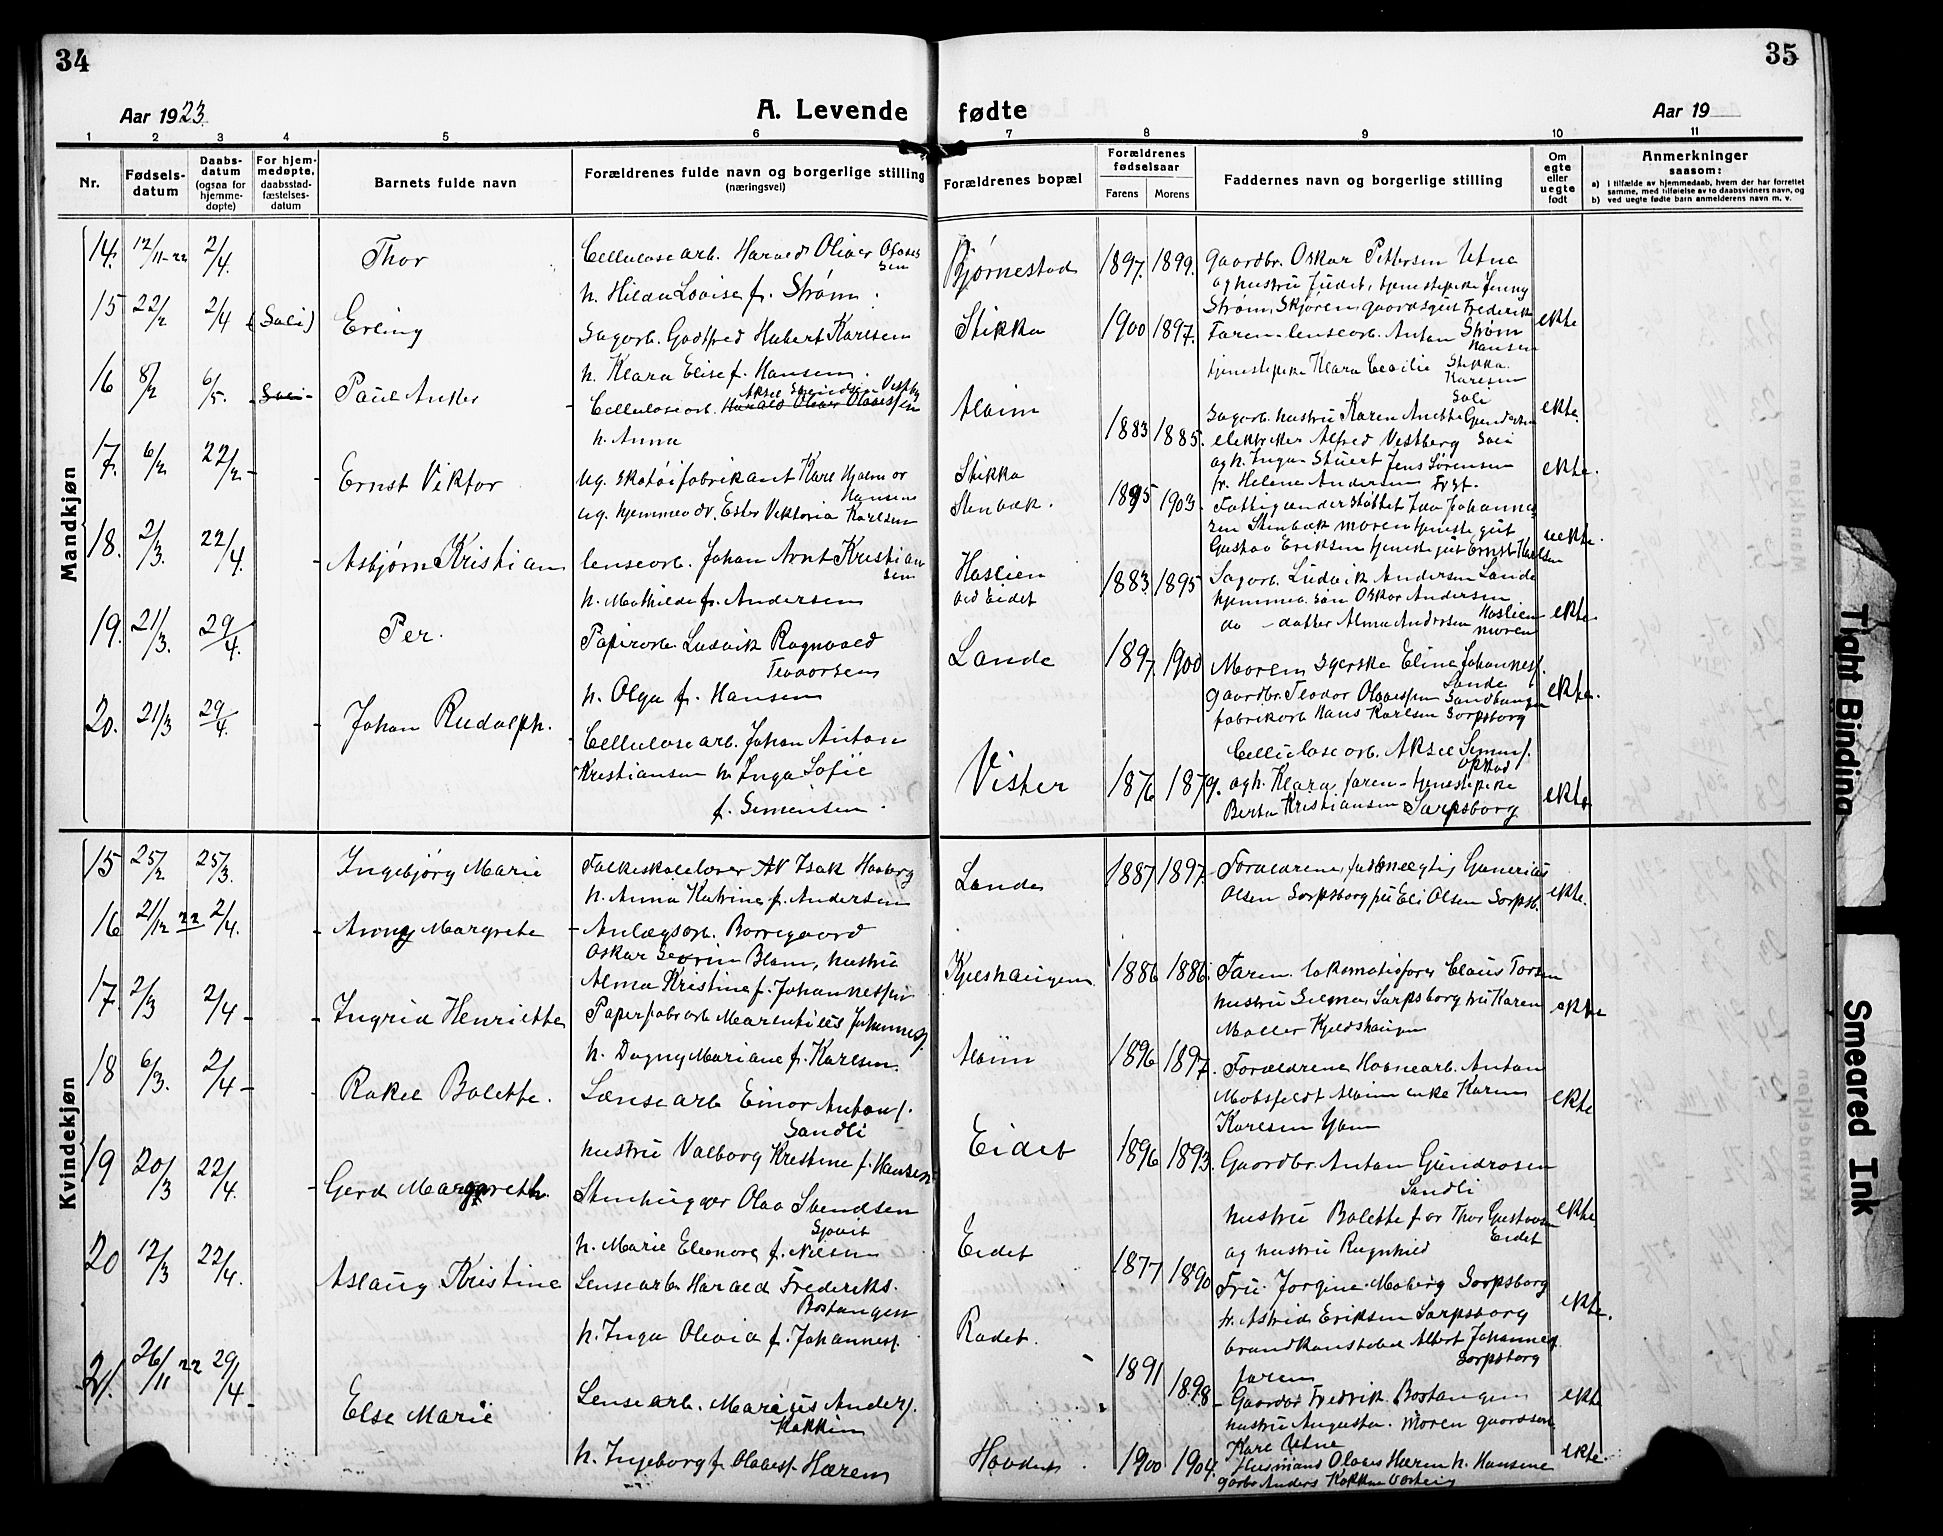 34
35
Aar 1923.
A. Levende
fødte
Aar 19
1 2 3 4 5 6 7 8 9 10 11
Nr.
Fødsels-
datum
Daabs-
datum
(ogsaa for
hjemme-
døpte)
For hjem-
medøpte,
daabsstad-
fæstelses-
datum
Barnets fulde navn
Forældrenes fulde navn og borgerlige stilling
(næringsvei)
Forældrenes bopæl
Forældrenes
fødselsaar
Farens Morens
Faddernes navn og borgerlige stilling
Om
egte
eller
uegte
født
Anmerkninger
saasom:
a) i tilfælde av hjemmedaab, hvem der har forrettet
samme, med tilføielse av to daabsvidners navn, og
b) ved uegte fødte barn anmelderens navn m. v.
Mandkjøn
14. 12/11-22 2/4. Thor
Cellulosearb. Harald Oliver Olaves
sen
h. Hilda Lovise f. Strøm.
Bjørnestad 1897. 1899.
Gaardbr. Oskar Pettersen Utne
og hustru Judet, tjenestepike Jenny
Strøm, Skjøren, gaardsgut Frederik
Strøm
ekte
15 22/2 2/4 (Soli) Erling
Sagarb. Godtfred Hubert Karlsen
h. Klara Elise f. Hansen.
Stikka 1900 1897.
Faren lensearb. Anton
Hansen
Stikka.
tjenestepike Klara Cecilie
Karlsen
Soli
ekte.
16 8/2 6/5. Soli Paul Anker
Aksel
Cellulosearb. Harald Oliver Olavessen
h. Anna
Alvim 1883 1885.
Sagarb. hustru Karen Anette Gundersen
elektriker Alfred Vestberg Soli
og h. Inga
ekte.
17. 6/2 22/2 Ernst Viktor
ug. skotøifabrikant Karl Hjalmar
Hansen
ug. hjemmev. dv. Ester Viktoria Karlsen
Stikka
Stenbæk. 1895 1903.
Jens Sørensen
fr. Helene Andersen
Fattigunderstøttet Ida Johannes
sen Stenbæk moren tjenestegut
Gustav Eriksen tjenestegut Ernst Karlsen
uekte.
18. 2/3 22/4. Asbjørn Kristian
lensearb. Johan Arnt Kristian
sen
h. Mathilde f. Andersen
Haslien
ved Eidet 1883 1895
Sagarb. Ludvik Andersen Lande
hjemmev. søn Oskar Andersen
do - datter Alma Andersen Haslien
moren
ekte
19. 21/3. 29/4. Per.
Papirarb. Ludvik Ragnvald
Teodorsen
h. Olga f. Hansen
Lande 1897. 1900
Moren syerske Elina Johannesf.
Lande
gaardbr. Teodor Olavessen Sandbungen
fabrikarb Hans Karlsen Sarpsborg
ekte.
20. 21/3 29/4. Johan Rudolph.
Cellulosearb. Johan Anton
Kristiansen h. Inga Sofie
f. Simensen.
Vister 1876 1879.
Cellulosearb. Aksel Simens.
Opstad
og h. Klara, faren - tjenestepike
Berta Kristiansen Sarpsborg
ekte
Kvindekjøn
15 25/2 25/3. Ingebjørg Marie
Folkeskolelærer Isak Haaberg
h. Anna Katrine f. Andersen
Lande 1887 1897.
Forældrene, fuldmægtig Gunerius
Olsen Sarpsborg frk Eli Olsen Sarpsb.
ekte.
16 21/12 22 2/4. Anny Margrete
Anlægsarb. Borregaard
Oskar Severin Blom, hustru
Alma Kristine f. Johannessen
Kjelshaugen 1886 1886.
Faren, lokomotivfører Claus Torsen
hustru Selma, Sarpsborg fru Karen
Møller Kjeldshaugen
ekte
17. 2/3 2/4 Ingrid Henriette
Papirfabrarb. Johannes.
h. Dagny Mariane f. Karlsen.
Alvim 1896 1897.
Forældrene Havnearb. Anton
Mobsfeldt Alvim enke Karen
Karlsen
ekte
18 6/3. 2/4 Rakel Bolette.
Lænsearb Einar Antons.
Sandli
hustru Valborg Kristine f. Hansen
Eidet 1896 1893.
Gaardbr. Anton Gundrosen
Sandli
hustru Bolette f or Thor Gustavsen
Eidet
og hustru Ragnhild
ekte
19 20/3 22/4. Gerd Margareth.
Stenhugger Olav Svendsen
h. Marie Eleonora f. Nilsen
Eidet 1877 1890
Fru Jorgine Moberg Sarpsborg
fr. Astrid Eriksen Sarpsborg
brandkonstabel Albert Johannes.
Sarpsborg
faren
ekte.
20 12/3 22/4. Aslaug Kristine
Lensearb. Harald Frederiks.
Bostangen
h. Inga Olivia f. Johannesf.
Rødet. 1891 1898
Gaardbr Fredrik Bostangen
hustru Augusta. Moren gaardsarb
Karl Utne
ekte
21. 26/11 22 29/4 Else Marie
Lensearb. Marius Anders.
Kokkim
h. Ingeborg f. Olaves. Hærem
Hovden 1900 1904.
Husmand Olaves Hærem h. Hansine
gaarbr Anders Kokkim
ekte.
Tight Binding
Smeared Ink